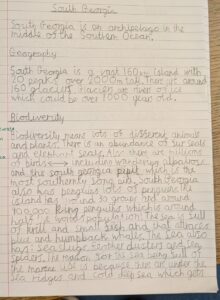 South Georgia
South Georgia is an archipelago in the
middle of the Southern Ocean.
Geography
South Georgia is a vast 160km island with
20 peaks over 2000m tall. There are around
160 glaciers. Glaciers are rivers of ice
which could be over 1000 years old.
Biodiversity
Biodiversity means lots of different animals
and plants. There is an abundance of fur seals
and elephant seals. Also there are millions
of birds including wandering albatross
and the south georgia pipit which is the
most southernly song bird. South Georgia
also has penguins lots of penguins the
island has found 30 groups that around
100,000 King penguins which is around
half the world population. The sea is full
of krill and small fish and that attracts
blue and humpback whales. The sea also
has: Sea slugs, feather dusters and sea
spiders. The reason for the sea being full of
the marine life is because there are under the
sea ridges and cold deep sea which gets